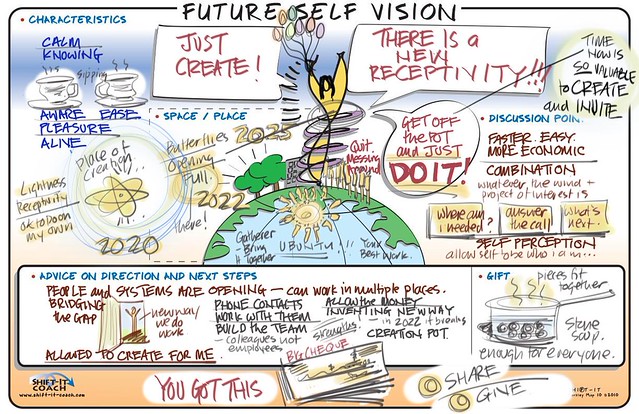 FUTURE SELF VISION
• CHARACTERISTICS
CALM
KNOWING
sipping
AWARE EASE
PLEASURE
ALIVE
JUST
CREATE!
THERE IS A
NEW
RECEPTIVITY!!!
TIME
NOW IS
SO VALUABLE
to CREATE
and INVITE
• SPACE / PLACE
Place of
Creation
Lightness
Receptivity
OK TO DO ON
my own
2020
Butterflies
Opening
Full!
2025
2022
there!
Quit
Messing
Around
GET OFF
the POT
and JUST
DO IT!
• DISCUSSION POIN
FASTER. EASY.
MORE ECONOMIC
COMBINATION
whatever the mind +
project of interest is
where am
i needed?
answer
the call
what's
next.
SELF PERCEPTION
allow self to be who i am...
Gatherer
- Bring
It Together
UBUNTU
Your
Best Work.
• ADVICE ON DIRECTION AND NEXT STEPS
PEOPLE and SYSTEMS ARE OPENING - can work in multiple places.
BRIDGING
the GAP
new way
we do
work
ALLOWED TO CREATE FOR ME.
PHONE CONTACTS
WORK WITH THEM
BUILD the TEAM
- colleagues not
employees
ALLOW the MONEY
INVENTING NEW WAY
- in 2022 it breaks
CREATION POT.
BIG CHEQUE
• GIFT
pieces fit
together
Stone
Soup.
enough for everyone.
SHIFT-IT
COACH
www.shift-it-coach.com
YOU GOT THIS
SHARE
GIVE